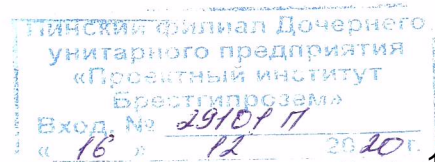 Пинский филиал Дочернего
унитарного предприятия
«Проектный институт
Брестгипрозем»
Вход. № 29101 П
« 16 » 12 2020 г.